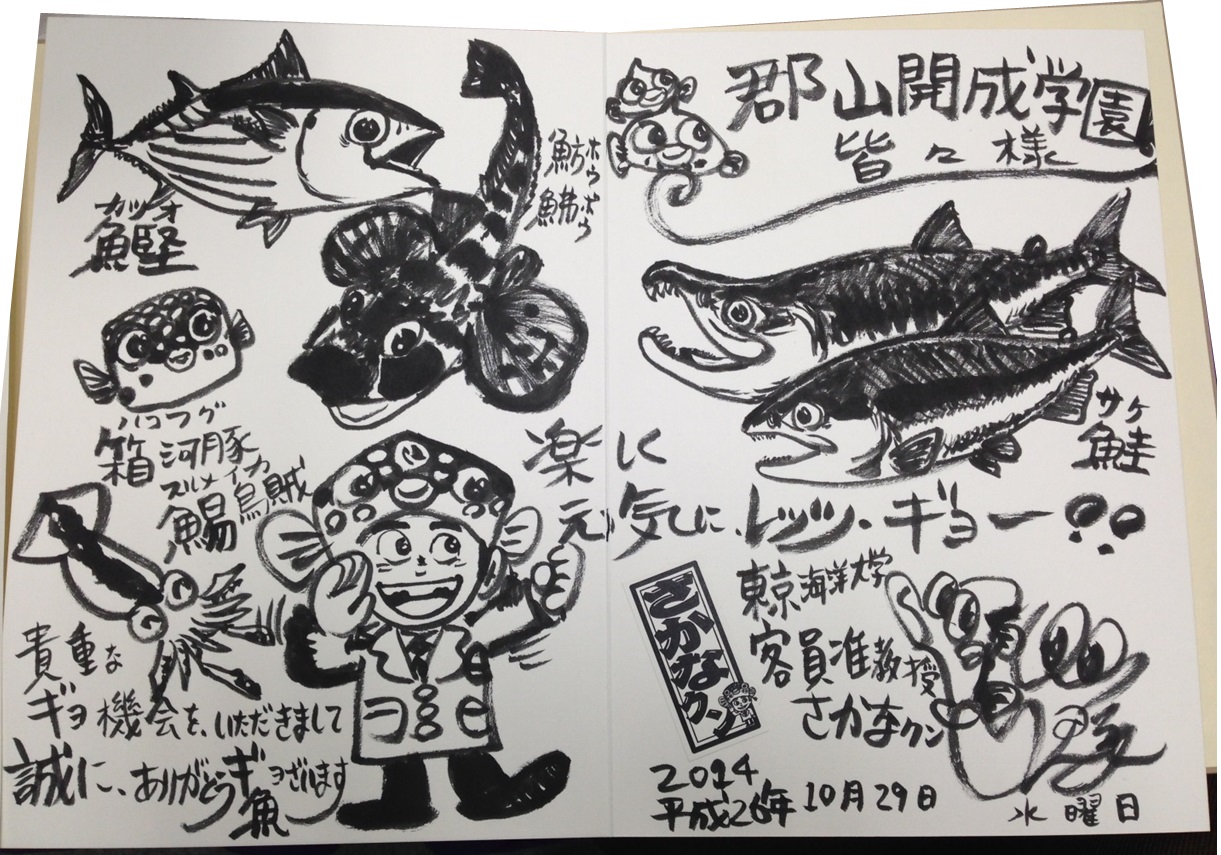 郡山開成学園
皆々様
カツオ
鰹
ホウボウ
魴鮄
ハコフグ
箱河豚
スルメイカ
鯣烏賊
サケ
鮭
楽しく
元気にレッツ・ギョー!!
貴重な
ギョ機会を、いただきまして
誠に、ありがとうギョざいます
魚
さかなクン
東京海洋大学
客員准教授
さかなクン
2014
平成26年10月29日
水曜日